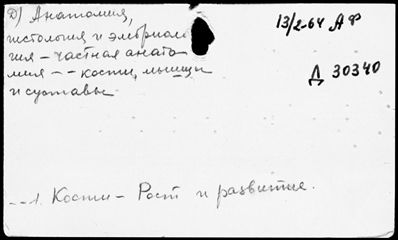 Д) Анатомия,
гистология и эмбриоло
гия – частная анато
мия – – кости, мышцы
и суставы.
13/2-64 АФ
Д 30340
– – 1. Кости – Рост и развитие.